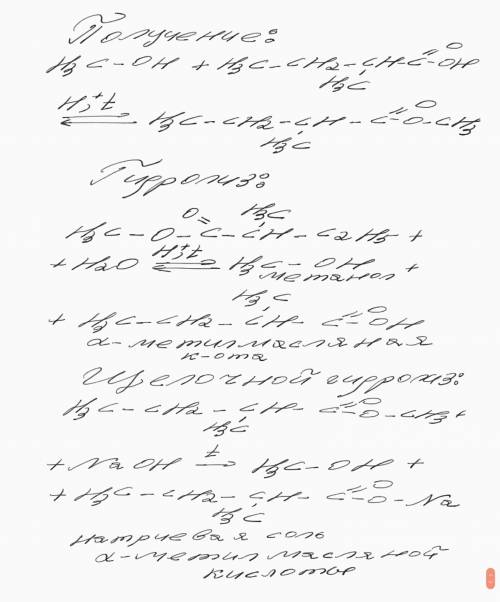 Получение:
H3C-OH + H3C-CH2-CH-C=O OH
H3C
H,+t
⇄ H3C-CH2-CH-C=O O-CH3
H3C
Гидролиз:
O H3C
H3C-O-C-CH-C2H5 +
+ H2O ⇄ H,+t H3C-OH +
метанол
H3C
+ H3C-CH2-CH-C=O OH
α-метилмасляная
к-ота
Щелочной гидролиз:
H3C-CH2-CH-C=O O-CH3+
H3C
+ NaOH →t H3C-OH +
+ H3C-CH2-CH-C=O O-Na
H3C
натриевая соль
α-метилмасляной
кислоты